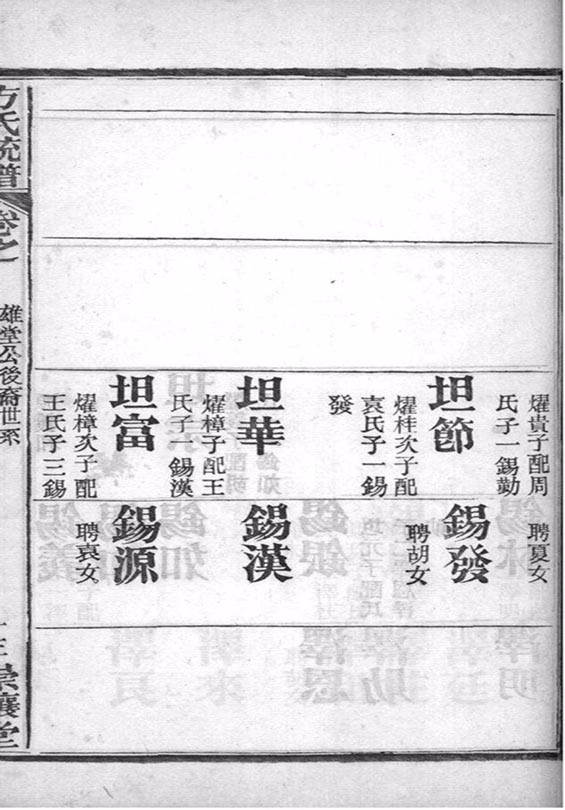 燿貴子配周
氏子一錫勤
坦節
燿桂次子配
袁氏子一錫
發
坦華
燿樟子配王
氏子一錫漢
坦富
燿樟次子配
王氏子三錫
聘夏女
錫發
聘胡女
錫漢
錫源
聘袁女
方氏統譜
卷之
雄堂公後裔世系
崇讓堂